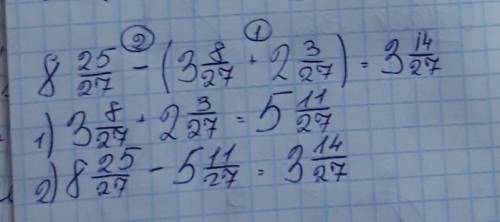 ② ①
8 25/27 - (3 8/27 + 2 3/27) = 3 14/27
1) 3 8/27 + 2 3/27 = 5 11/27
2) 8 25/27 - 5 11/27 = 3 14/27